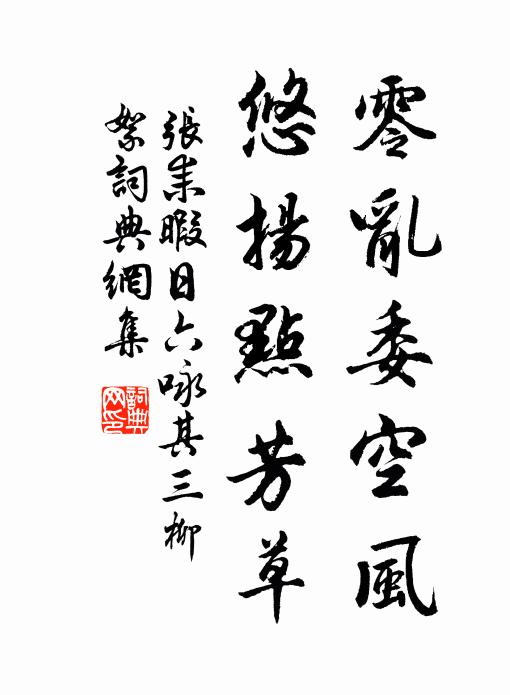 零亂委空風
悠揚點芳草
張耒暇日六咏其三柳
絮詞典網集
詞典
网印